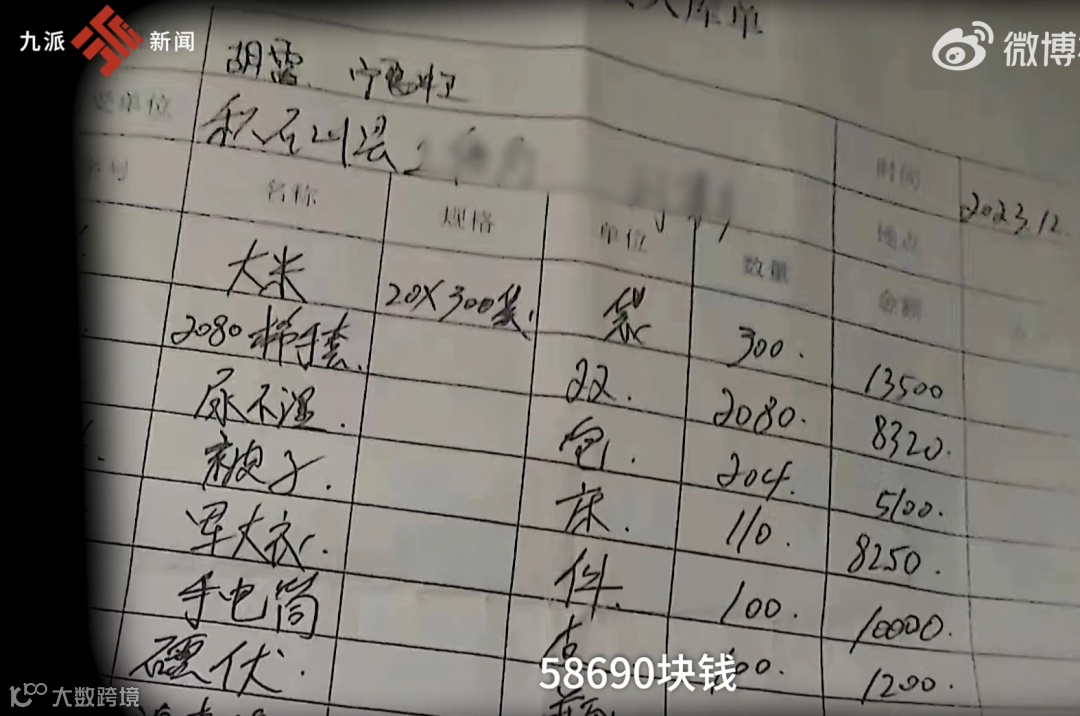 九派 新闻
微博
入库单
胡霞、
单位
积石山县
时间 2023.12.
号 名称 规格 单位 数量 地点
金额
大米 20X300袋. 袋 300. 13500
2080棉手套. 双. 2080. 8320.
尿不湿. 包. 204. 5100.
被子. 床. 110. 8250.
军大衣. 件. 100. 10000.
手电筒 00. 1200.
58690块钱
大数跨境